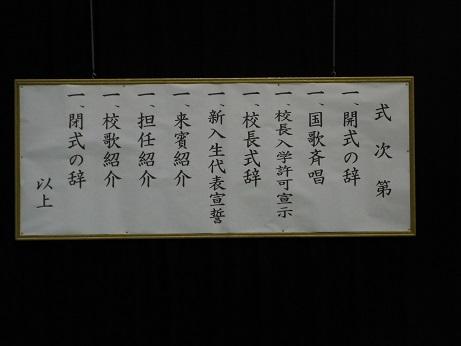 式次第
一、開式の辞
一、国歌斉唱
一、校長入学許可宣示
一、校長式辞
一、新入生代表宣誓
一、来賓紹介
一、担任紹介
一、校歌紹介
一、閉式の辞
以上